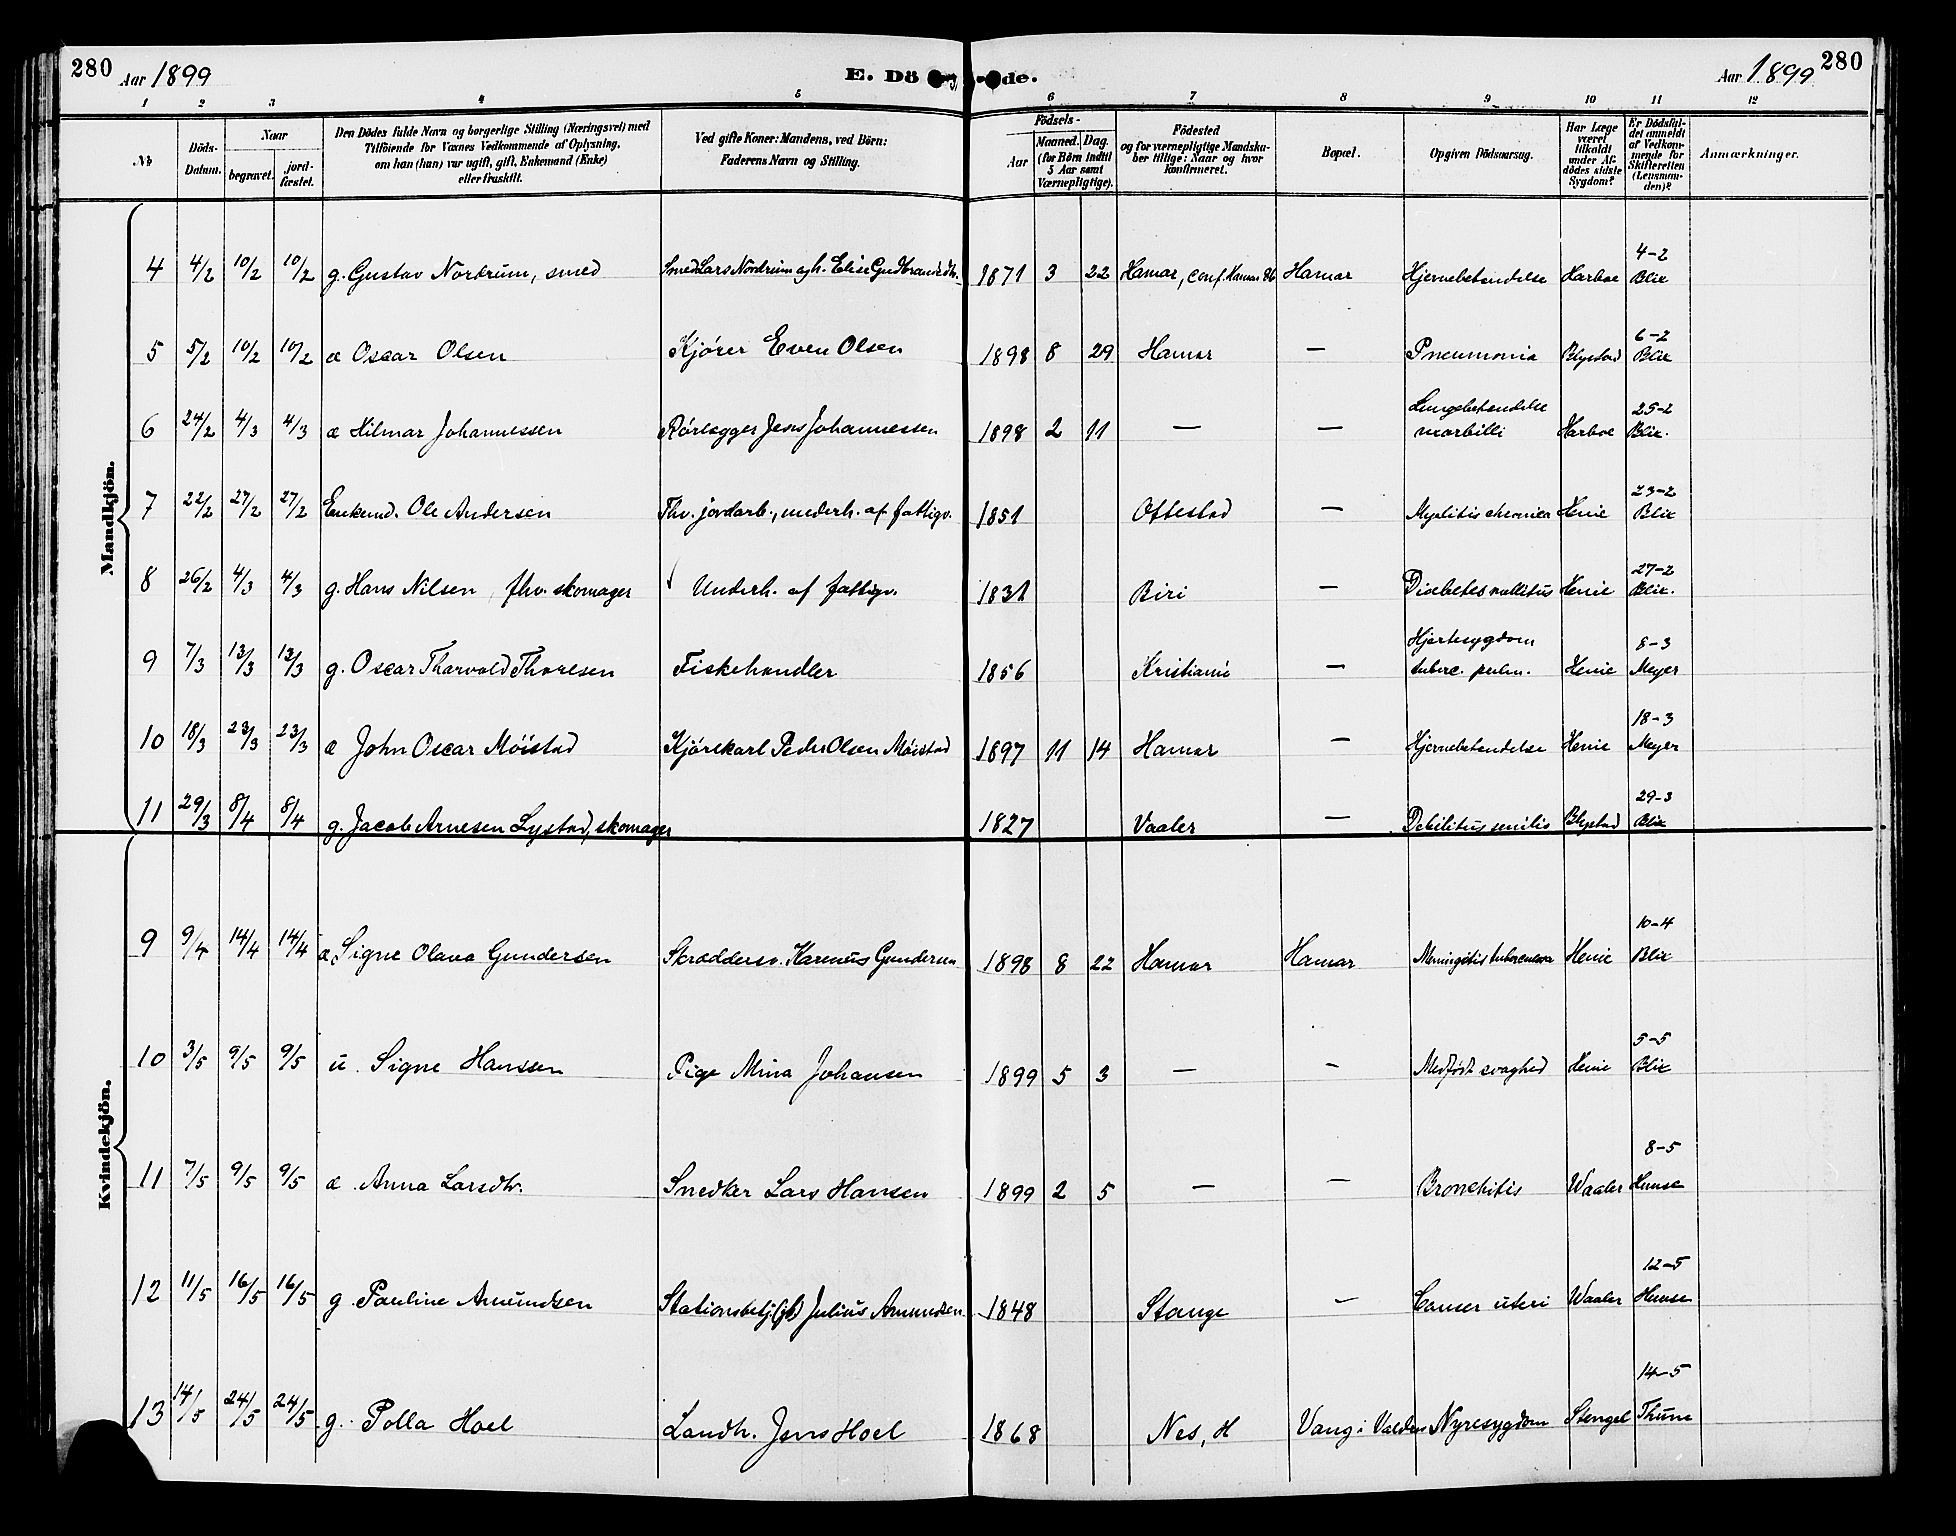 280 Aar 1899 E. Dö de. Aar 1899 280
1 2 3 4 5 6 7 8 9 10 11 12
№ Döds-Datum. Naar begravet. jordfæstet. Den Dödes fulde Navn og borgerlige Stilling (Næringsvei) med Tilföiende for Voxnes Vedkommende af Oplysning, om han (hun) var ugift, gift, Enkemand (Enke) eller fraskilt. Ved gifte Koner: Mandens, ved Börn: Faderens Navn og Stilling. Födsels- Aar Maaned. Dag. (for Börn indtil 5 Aar samt Værnepligtige). Födested og for værnepligtige Mandskaber tillige: Naar og hvor konfirmeret. Bopæl. Opgiven Dödsaarsag. Har Læge været tilkaldt under Afdödes sidste Sygdom? Er Dödsfaldet anmeldt af Vedkommende for Skifteretten (Lensmanden)? Anmærkninger.
Mandkjön.
4 4/2 10/2 10/2 g. Gustav Nordrum, smed Smed Lars Nordrum og h. Elise Gudbrandsdtr. 1871 3 22 Hamar, conf. Hamar Hamar Hjernebetendelse Harboe 4-2 Blix
5 5/2 10/2 10/2 æ Oscar Olsen Kjører Even Olsen 1898 8 29 Hamar — Pneumonia Blystad 6-2 Blix
6 24/2 4/3 4/3 æ Hilmar Johannessen Rörlegger Jens Johannessen 1898 2 11 — — Lungebetendelse morbilli Harboe 25-2 Blix.
7 22/2 27/2 27/2 Enkemd. Ole Andersen Fhv. jordarb., underh. af fattigv. 1851 Ottestad — Myelitis chronica Henie 23-2 Blix
8 26/2 4/3 4/3 g. Hans Nilsen, fhv. skomager Underh. af fattigv. 1831 Biri — Diabetes mellitus Henie 27-2 Blix.
9 7/3 13/3 13/3 g. Oscar Tharvald Thoresen Fiskehandler 1856 Kristiania — Hjertesygdom tuberc. pulm. Henie 8-3 Meyer
10 18/3 23/3 23/3 æ John Oscar Möistad Kjörekarl Peder Olsen Möistad 1897 11 14 Hamar — Hjernebetendelse Henie 18-3 Meyer
11 29/3 8/4 8/4 g. Jacob Arnesen Lystad, skomager 1827 Vaaler — Debilitus senilis Blystad 29-3 Blix
Kvindekjön.
9 9/4 14/4 14/4 æ Signe Olava Gundersen Skrædderv. Karenus Gundersen 1898 8 22 Hamar Hamar Meningitis tuberculosa Henie 10-4 Blix
10 3/5 9/5 9/5 u. Signe Hanssen Pige Mina Johansen 1899 5 3 — — Medfödt svaghed Henie 5-5 Blix
11 7/5 9/5 9/5 æ. Anna Larsdtr. Snedker Lars Hansen 1899 2 5 — — Bronchitis Waaler 8-5
12 11/5 16/5 16/5 g. Pauline Amundsen Stationsbetj. Julius Amundsen 1848 Stange — Canser uteri Waaler 12-5
13 14/5 24/5 24/5 g. Polla Hoel Landh. Jens Hoel 1868 Nes, H Vang i Valdres Nyresygdom Stengel 14-5 Thune